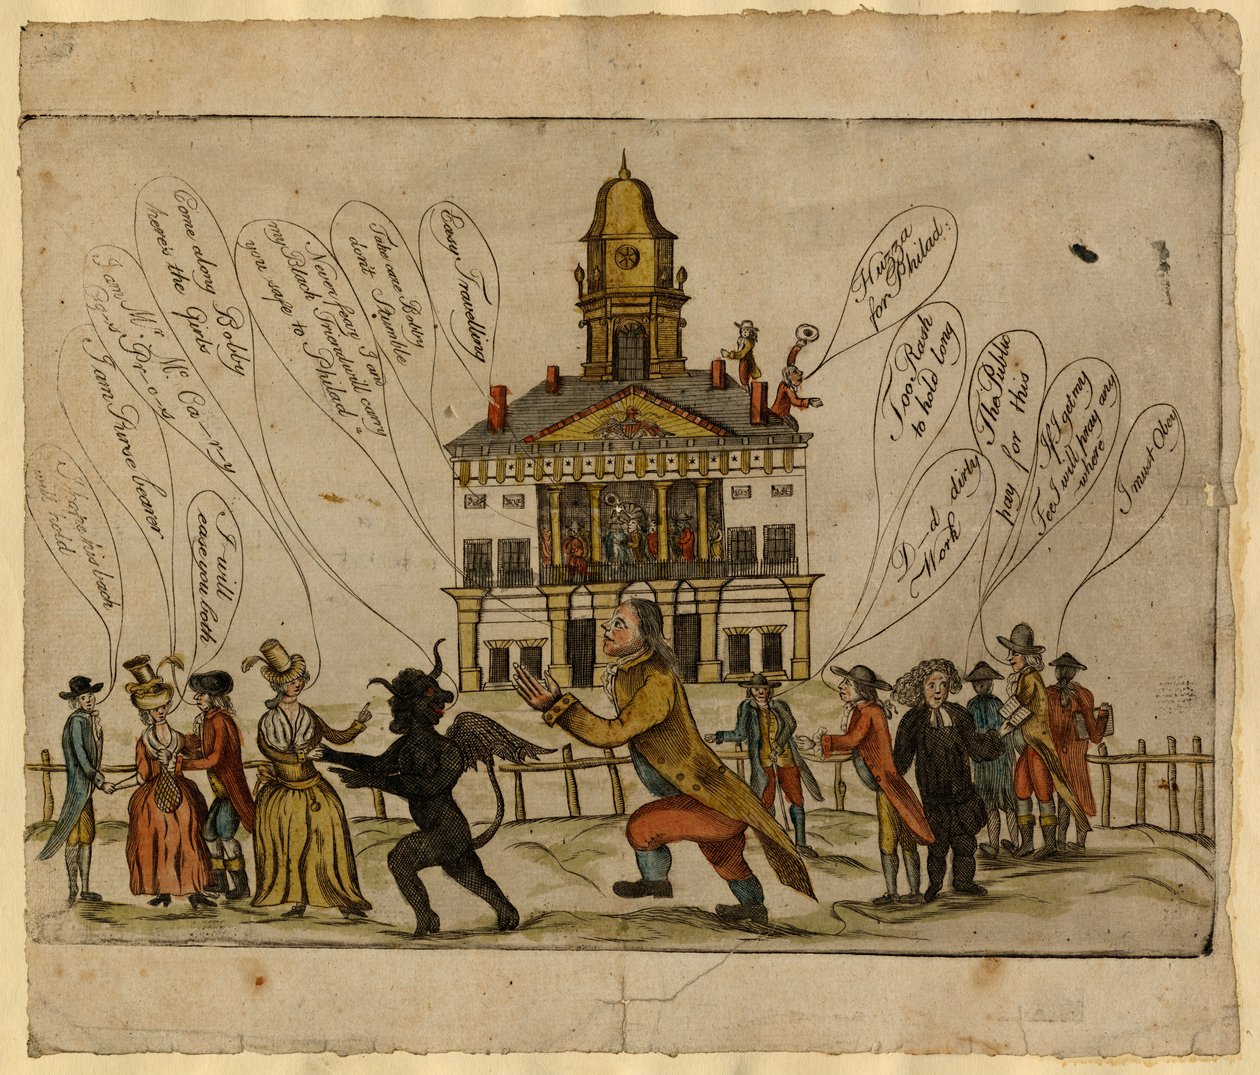 I hope his back
will hold
I am Purse bearer
I am Mc. Mc. Ca ry
Come along Bobby
here's the Girls
I will
ease you both
Never fear I am
my Black Friend will carry
you safe to Philad.a
Take care Bobby
don't Stumble
Easy Travelling
Huzza
for Philad:
Too Rash
to hold long
D—d dirty
Work
The Public
pay for this
If I get my
Fee I will pray any
where
I must Obey